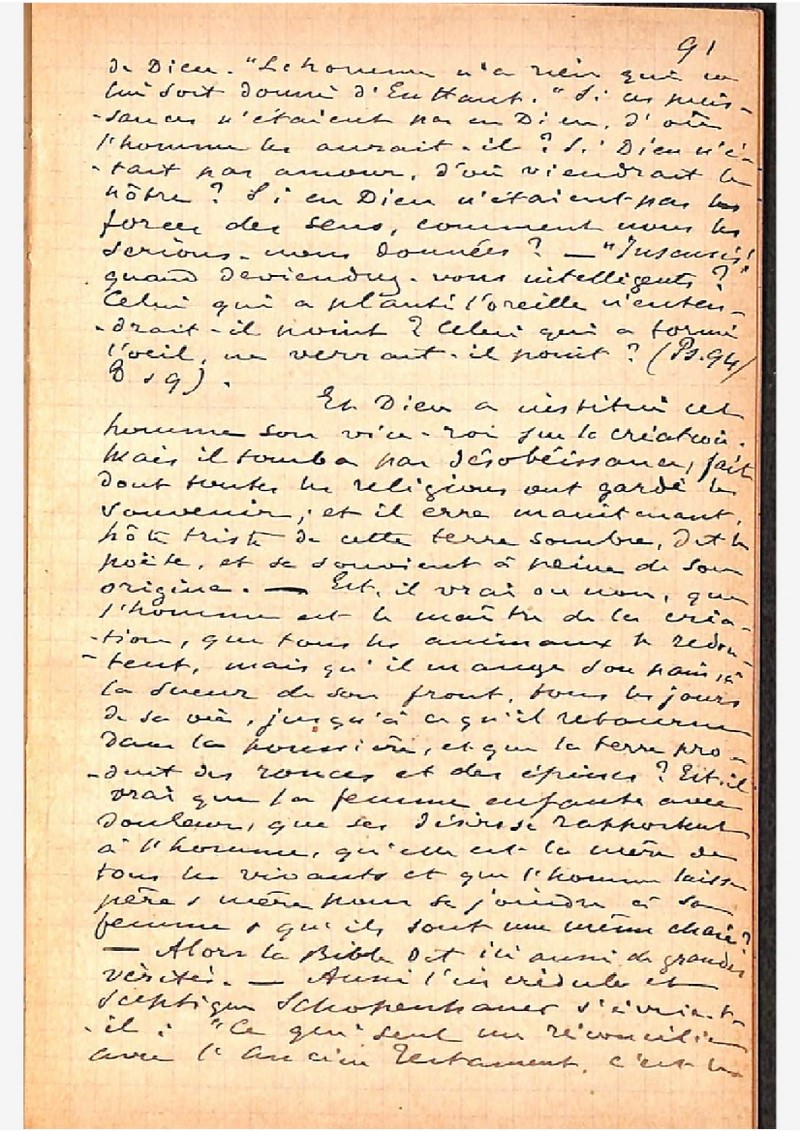 91
de Dieu. "L'homme n'a rien qui ne
lui soit donné d'En Haut." Si ces puis-
-sances n'étaient pas en Dieu, d'où
l'homme les aurait-il ? Si Dieu n'é-
-tait pas amour, d'où viendrait le
nôtre ? Si en Dieu n'étaient pas les
forces des sens, comment nous les
serions-nous données ? — "Insensés!
quand deviendrez-vous intelligents ?
Celui qui a planté l'oreille n'enten-
-drait-il point ? Celui qui a formé
l'oeil, ne verrait-il point ? (Ps. 94/
8 s 9).
Et Dieu a institué cet
homme son vice-roi sur la création.
Mais il tomba par désobéissance, fait
dont toutes les religions ont gardé le
souvenir; et il erre maintenant,
hôte triste de cette terre sombre, dit le
poëte, et se souvient à peine de son
origine. — Est-il vrai ou non, que
l'homme est le maître de la créa-
-tion, que tous les animaux le redou-
-tent, mais qu'il mange son pain, à
la sueur de son front, tous les jours
de sa vie, jusqu'à ce qu'il retourne
dans la poussière, et que la terre pro-
-duit des ronces et des épines ? Est-il
vrai que la femme enfante avec
douleur, que ses désirs se rapportent
à l'homme, qu'elle est la mère de
tous les vivants et que l'homme laisse
père s mère pour se joindre à sa
femme s qu'ils sont une même chair?
— Alors la Bible dit ici aussi de grandes
vérités. — Aussi l'incrédule et
sceptique Schopenhauer s'écriait-
-il : "Ce qui seul me réconcilie
avec l'Ancien Testament, c'est la